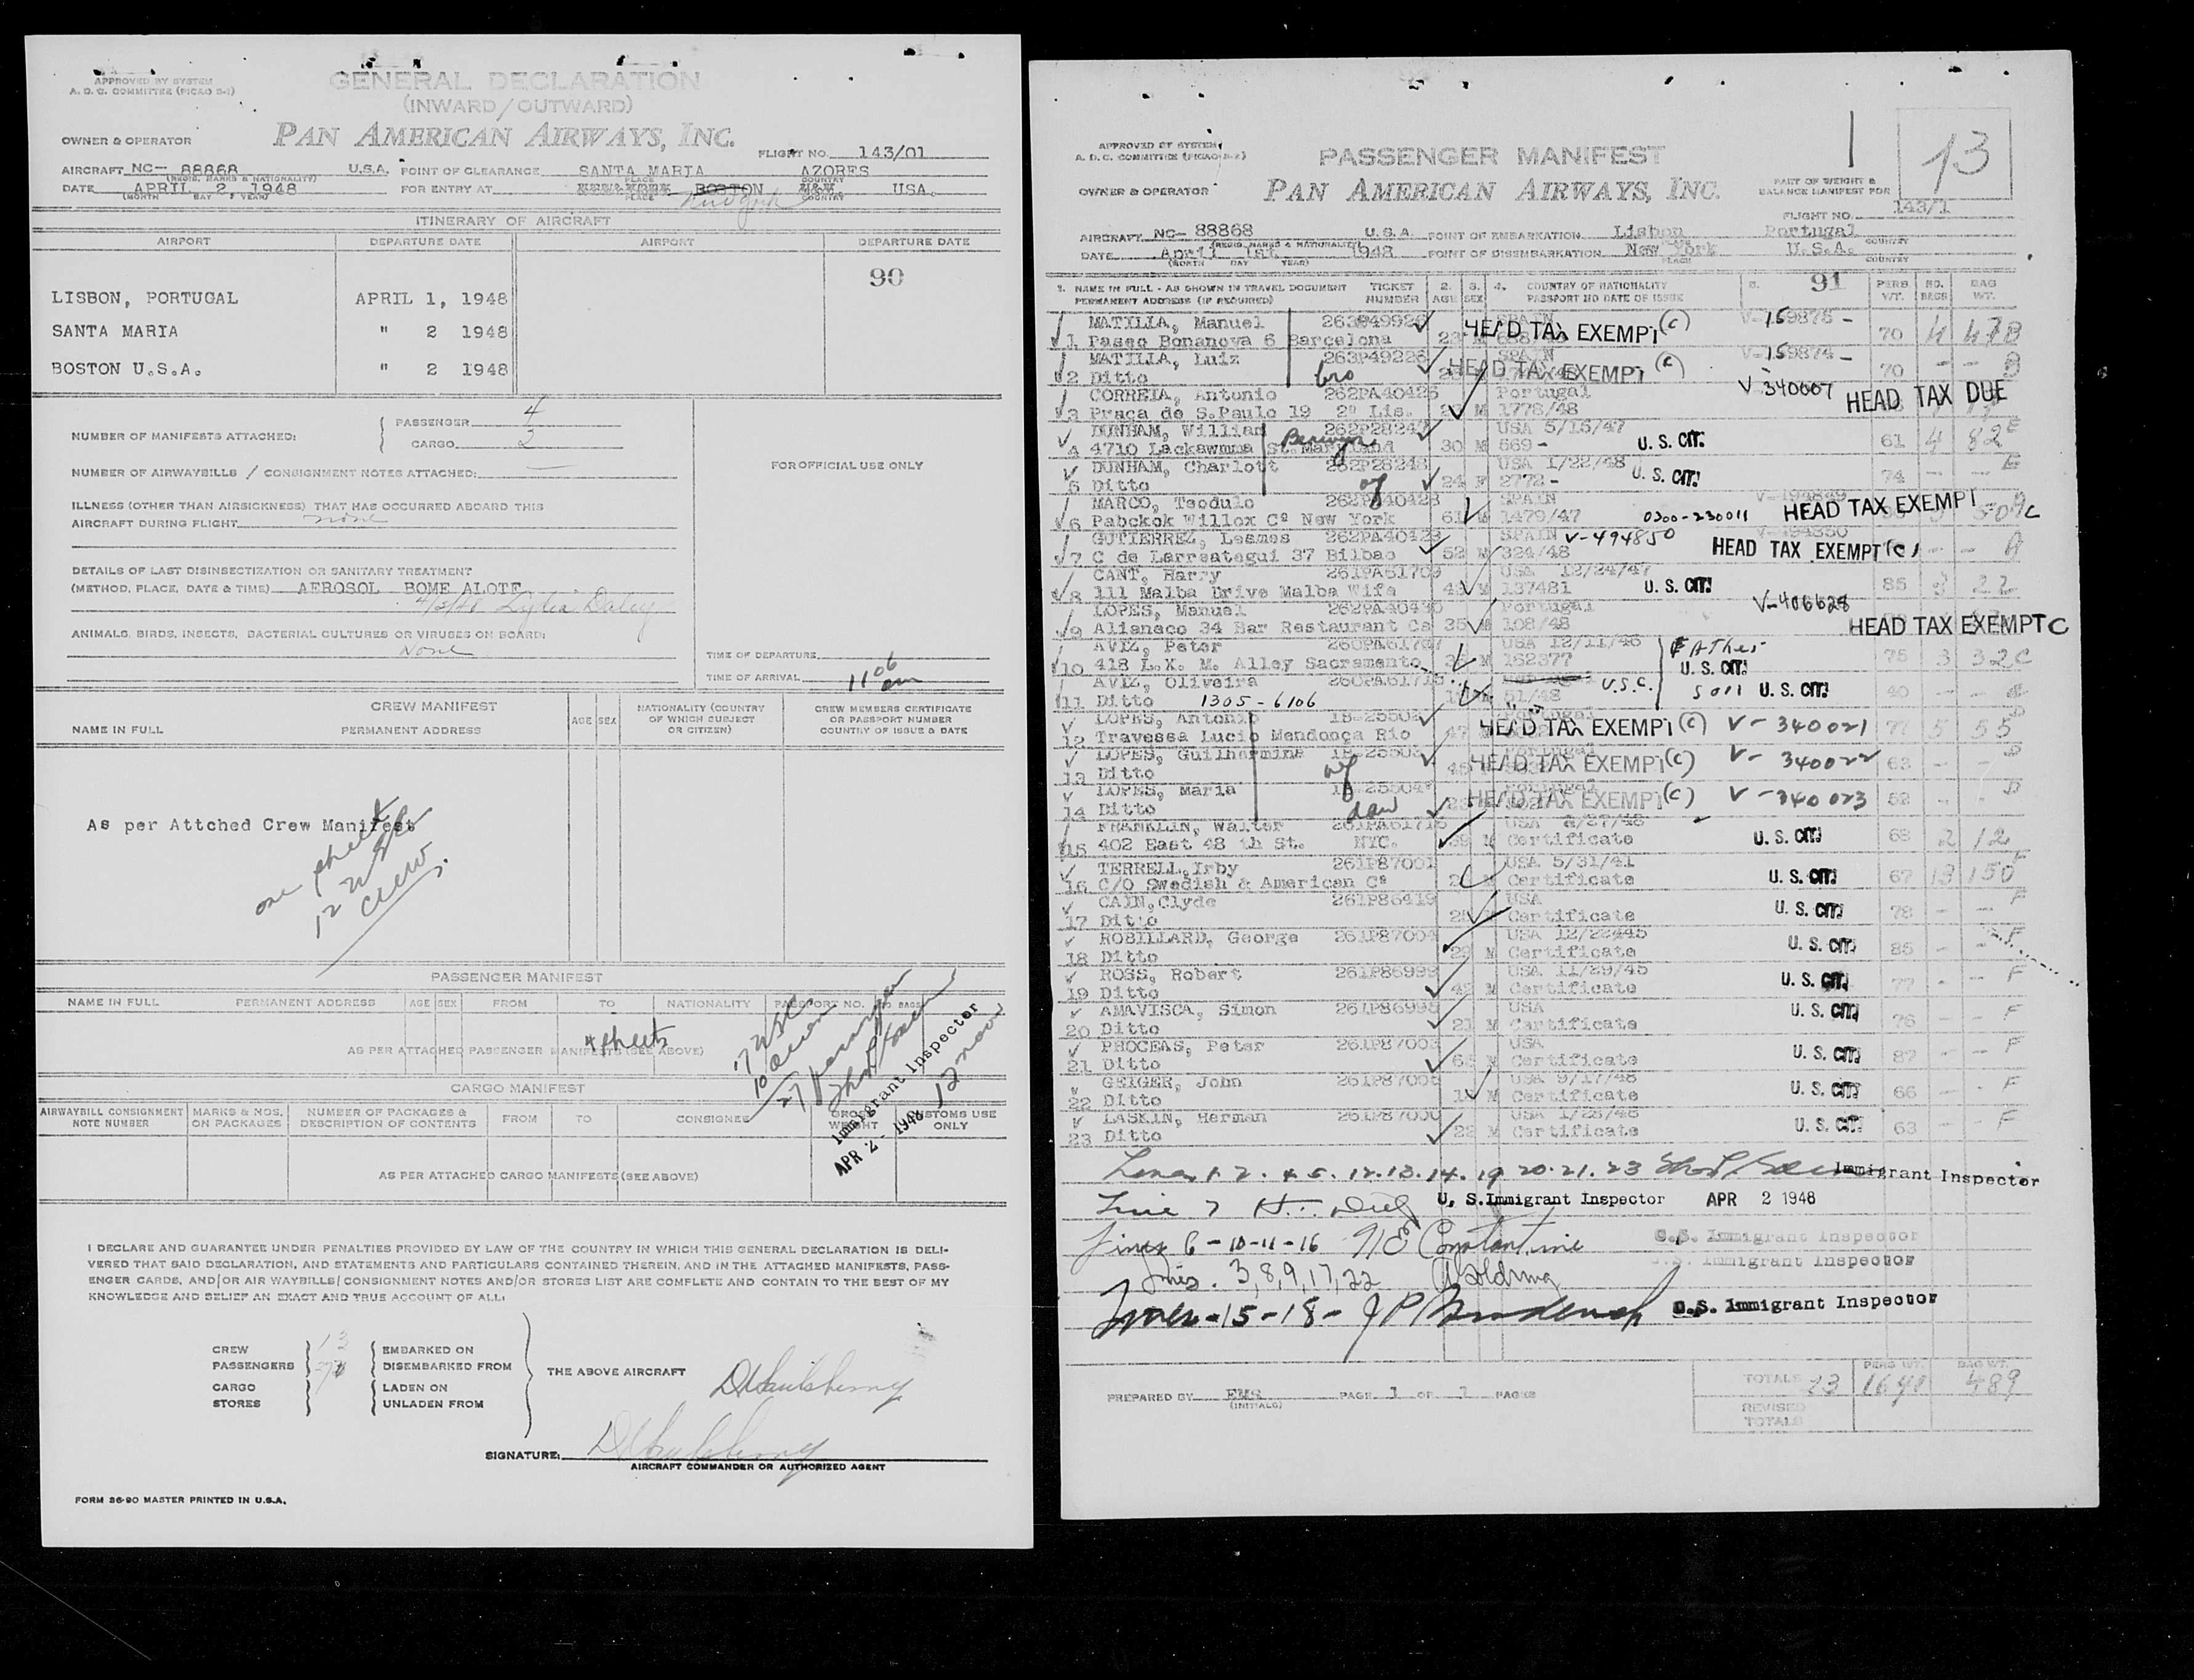 APPROVED BY SYSTEM
A. D. C. COMMITTEE (PICAO B-1)
GENERAL DECLARATION
(INWARD/OUTWARD)
OWNER & OPERATOR
PAN AMERICAN AIRWAYS, INC.
FLIGHT NO. 143/01
AIRCRAFT NC- 88868 U.S.A. POINT OF CLEARANCE SANTA MARIA AZORES
(REGIS. MARKS & NATIONALITY) PLACE COUNTRY
DATE APRIL 2, 1948 FOR ENTRY AT BOSTON USA.
(MONTH DAY YEAR) PLACE New York COUNTRY
ITINERARY OF AIRCRAFT
AIRPORT DEPARTURE DATE AIRPORT DEPARTURE DATE
90
LISBON, PORTUGAL APRIL 1, 1948
SANTA MARIA " 2 1948
BOSTON U.S.A. " 2 1948
NUMBER OF MANIFESTS ATTACHED:
PASSENGER 4
CARGO 2
NUMBER OF AIRWAYBILLS / CONSIGNMENT NOTES ATTACHED:
FOR OFFICIAL USE ONLY
ILLNESS (OTHER THAN AIRSICKNESS) THAT HAS OCCURRED ABOARD THIS
AIRCRAFT DURING FLIGHT none
DETAILS OF LAST DISINSECTIZATION OR SANITARY TREATMENT
(METHOD, PLACE, DATE & TIME) AEROSOL BOME ALOTE
4/2/48 Lydia Daley
ANIMALS, BIRDS, INSECTS, BACTERIAL CULTURES OR VIRUSES ON BOARD:
None
TIME OF DEPARTURE
TIME OF ARRIVAL 1106 am
CREW MANIFEST
NAME IN FULL PERMANENT ADDRESS AGE SEX NATIONALITY (COUNTRY OF WHICH SUBJECT OR CITIZEN) CREW MEMBERS CERTIFICATE OR PASSPORT NUMBER COUNTRY OF ISSUE & DATE
As per Attched Crew Manifest
one sheet
12 USC
crew.
PASSENGER MANIFEST
NAME IN FULL PERMANENT ADDRESS AGE SEX FROM TO NATIONALITY PASSPORT NO. NO BAGS
4 sheets
AS PER ATTACHED PASSENGER MANIFESTS (SEE ABOVE)
17 USC
10 aliens
27 passengers
Immigrant Inspector
APR 2 - 1948
12 noon
CARGO MANIFEST
AIRWAYBILL CONSIGNMENT NOTE NUMBER MARKS & NOS. ON PACKAGES NUMBER OF PACKAGES & DESCRIPTION OF CONTENTS FROM TO CONSIGNEE GROSS WEIGHT CUSTOMS USE ONLY
AS PER ATTACHED CARGO MANIFESTS (SEE ABOVE)
I DECLARE AND GUARANTEE UNDER PENALTIES PROVIDED BY LAW OF THE COUNTRY IN WHICH THIS GENERAL DECLARATION IS DELI-
VERED THAT SAID DECLARATION, AND STATEMENTS AND PARTICULARS CONTAINED THEREIN, AND IN THE ATTACHED MANIFESTS, PASS-
ENGER CARDS, AND/OR AIR WAYBILLS/CONSIGNMENT NOTES AND/OR STORES LIST ARE COMPLETE AND CONTAIN TO THE BEST OF MY
KNOWLEDGE AND BELIEF AN EXACT AND TRUE ACCOUNT OF ALL:
CREW 13 EMBARKED ON
PASSENGERS 27 DISEMBARKED FROM
THE ABOVE AIRCRAFT
CARGO LADEN ON
STORES UNLADEN FROM
SIGNATURE:
AIRCRAFT COMMANDER OR AUTHORIZED AGENT
FORM 86-90 MASTER PRINTED IN U.S.A.
APPROVED BY SYSTEM
A. D. C. COMMITTEE (PICAO B-2)
PASSENGER MANIFEST
13
OWNER & OPERATOR
PAN AMERICAN AIRWAYS, INC.
PART OF WEIGHT &
BALANCE MANIFEST FOR
FLIGHT NO. 143/1
AIRCRAFT NC- 88868 U.S.A. POINT OF EMBARKATION Lisbon Portugal
(REGIS. MARKS & NATIONALITY) PLACE COUNTRY
DATE April 1st 1948 POINT OF DISEMBARKATION New York U.S.A.
(MONTH DAY YEAR) PLACE COUNTRY
91
1. NAME IN FULL - AS SHOWN IN TRAVEL DOCUMENT TICKET 2. 3. 4. COUNTRY OF NATIONALITY 5. PERS. NO. BAG
PERMANENT ADDRESS (IF REQUIRED) NUMBER AGE SEX PASSPORT NO DATE OF ISSUE WT. BAGS WT.
MATILLA, Manuel SPAIN
1 Paseo Bonanova 6 Barcelona 23 M HEAD TAX EXEMPT (C) 70 4 47 B
MATILLA, Luiz 263P49226 SPAIN V-159874 -
2 Ditto bro HEAD TAX EXEMPT (C) 70 - - B
CORREIA, Antonio 262PA40426 Portugal V 340007
3 Praca de S.Paulo 19 2º Lis. M 1778/48 HEAD TAX DUE
DUNHAM, William 262P28247 USA 5/15/47
4 4710 Lackawmma St. Maryland Berwyn 30 M 669 - U. S. CIT. 61 4 82 E
DUNHAM, Charlott 262P28248 USA 1/22/48
5 Ditto wf 24 F 2772 - U. S. CIT. 74 - - E
MARCO, Teodulo 262PA40428 SPAIN V-194849
6 Pabckok Willox Cº New York 61 M 1479/47 0300-230011 HEAD TAX EXEMPT C
GUTIERREZ, Lesmes 262PA40429 SPAIN V-494850
7 C de Larreategui 37 Bilbao 52 M 324/48 HEAD TAX EXEMPT (C) - - A
CANT, Harry 261PA61709 USA 12/24/47
8 111 Malba Drive Malba Wifa M 137481 U. S. CIT. 85 3 22
LOPES, Manuel 262PA40430 Portugal V-406628
9 Aliansco 34 Bar Restaurant Ca 35 M 108/48 HEAD TAX EXEMPT C
AVIZ, Peter 260PA61707 USA 12/11/46 Father
10 418 L.K. M. Alley Sacramento M 162377 U. S. CIT. 75 3 32 C
AVIZ, Oliveira
11 Ditto 1305-6106 51/48 U.S.C. son U. S. CIT. 40 - -
LOPES, Antonio Portugal
12 Travessa Lucio Mendonça Rio 47 HEAD TAX EXEMPT (C) V - 340021 77 5 55 D
LOPES, Guilhermina Portugal
13 Ditto wf HEAD TAX EXEMPT (C) V - 340022 63 - - D
LOPES, Maria Portugal
14 Ditto dau HEAD TAX EXEMPT (C) V - 340023 52 - - D
FRANKLIN, Walter USA
15 402 East 48 th St. NYC. M Certificate U. S. CIT. 68 2 12
TERRELL, Irby 261P87001 USA 5/31/41
16 C/O Swedish & American Cº Certificate U. S. CIT. 67 13 150 F
CAIN, Clyde 261P86419 USA
17 Ditto Certificate U. S. CIT. 78 - - F
ROBILLARD, George 261P87004 USA 12/22445
18 Ditto M Certificate U. S. CIT. 85 - - F
ROSS, Robert 261P86999 USA 11/29/45
19 Ditto M Certificate U. S. CIT. 77 - - F
AMAVISCA, Simon 261P86998 USA
20 Ditto 21 M Certificate U. S. CIT. 76 - - F
PHOCEAS, Peter 261P87003 USA
21 Ditto M Certificate U. S. CIT. 82 - - F
GEIGER, John USA 9/17/46
22 DItto M Certificate U. S. CIT. 66 - - F
LASKIN, Herman USA
23 Ditto 22 M Certificate U. S. CIT. 63 - - F
Lines 1. 2. 4 5. 12.13.14.19 20.21.23 Immigrant Inspector
Line 7 U. S. Immigrant Inspector APR 2 1948
Lines 6-10-11-16 N E Constantine U.S. Immigrant Inspector
U.S. Immigrant Inspector
Lines. 3,8,9,17,22
Lines-15-18- U.S. Immigrant Inspector
PREPARED BY EMS PAGE 1 OF 1 PAGES
(INITIALS)
PERS WT. BAG WT.
TOTALS 23 1640 489
REVISED
TOTALS